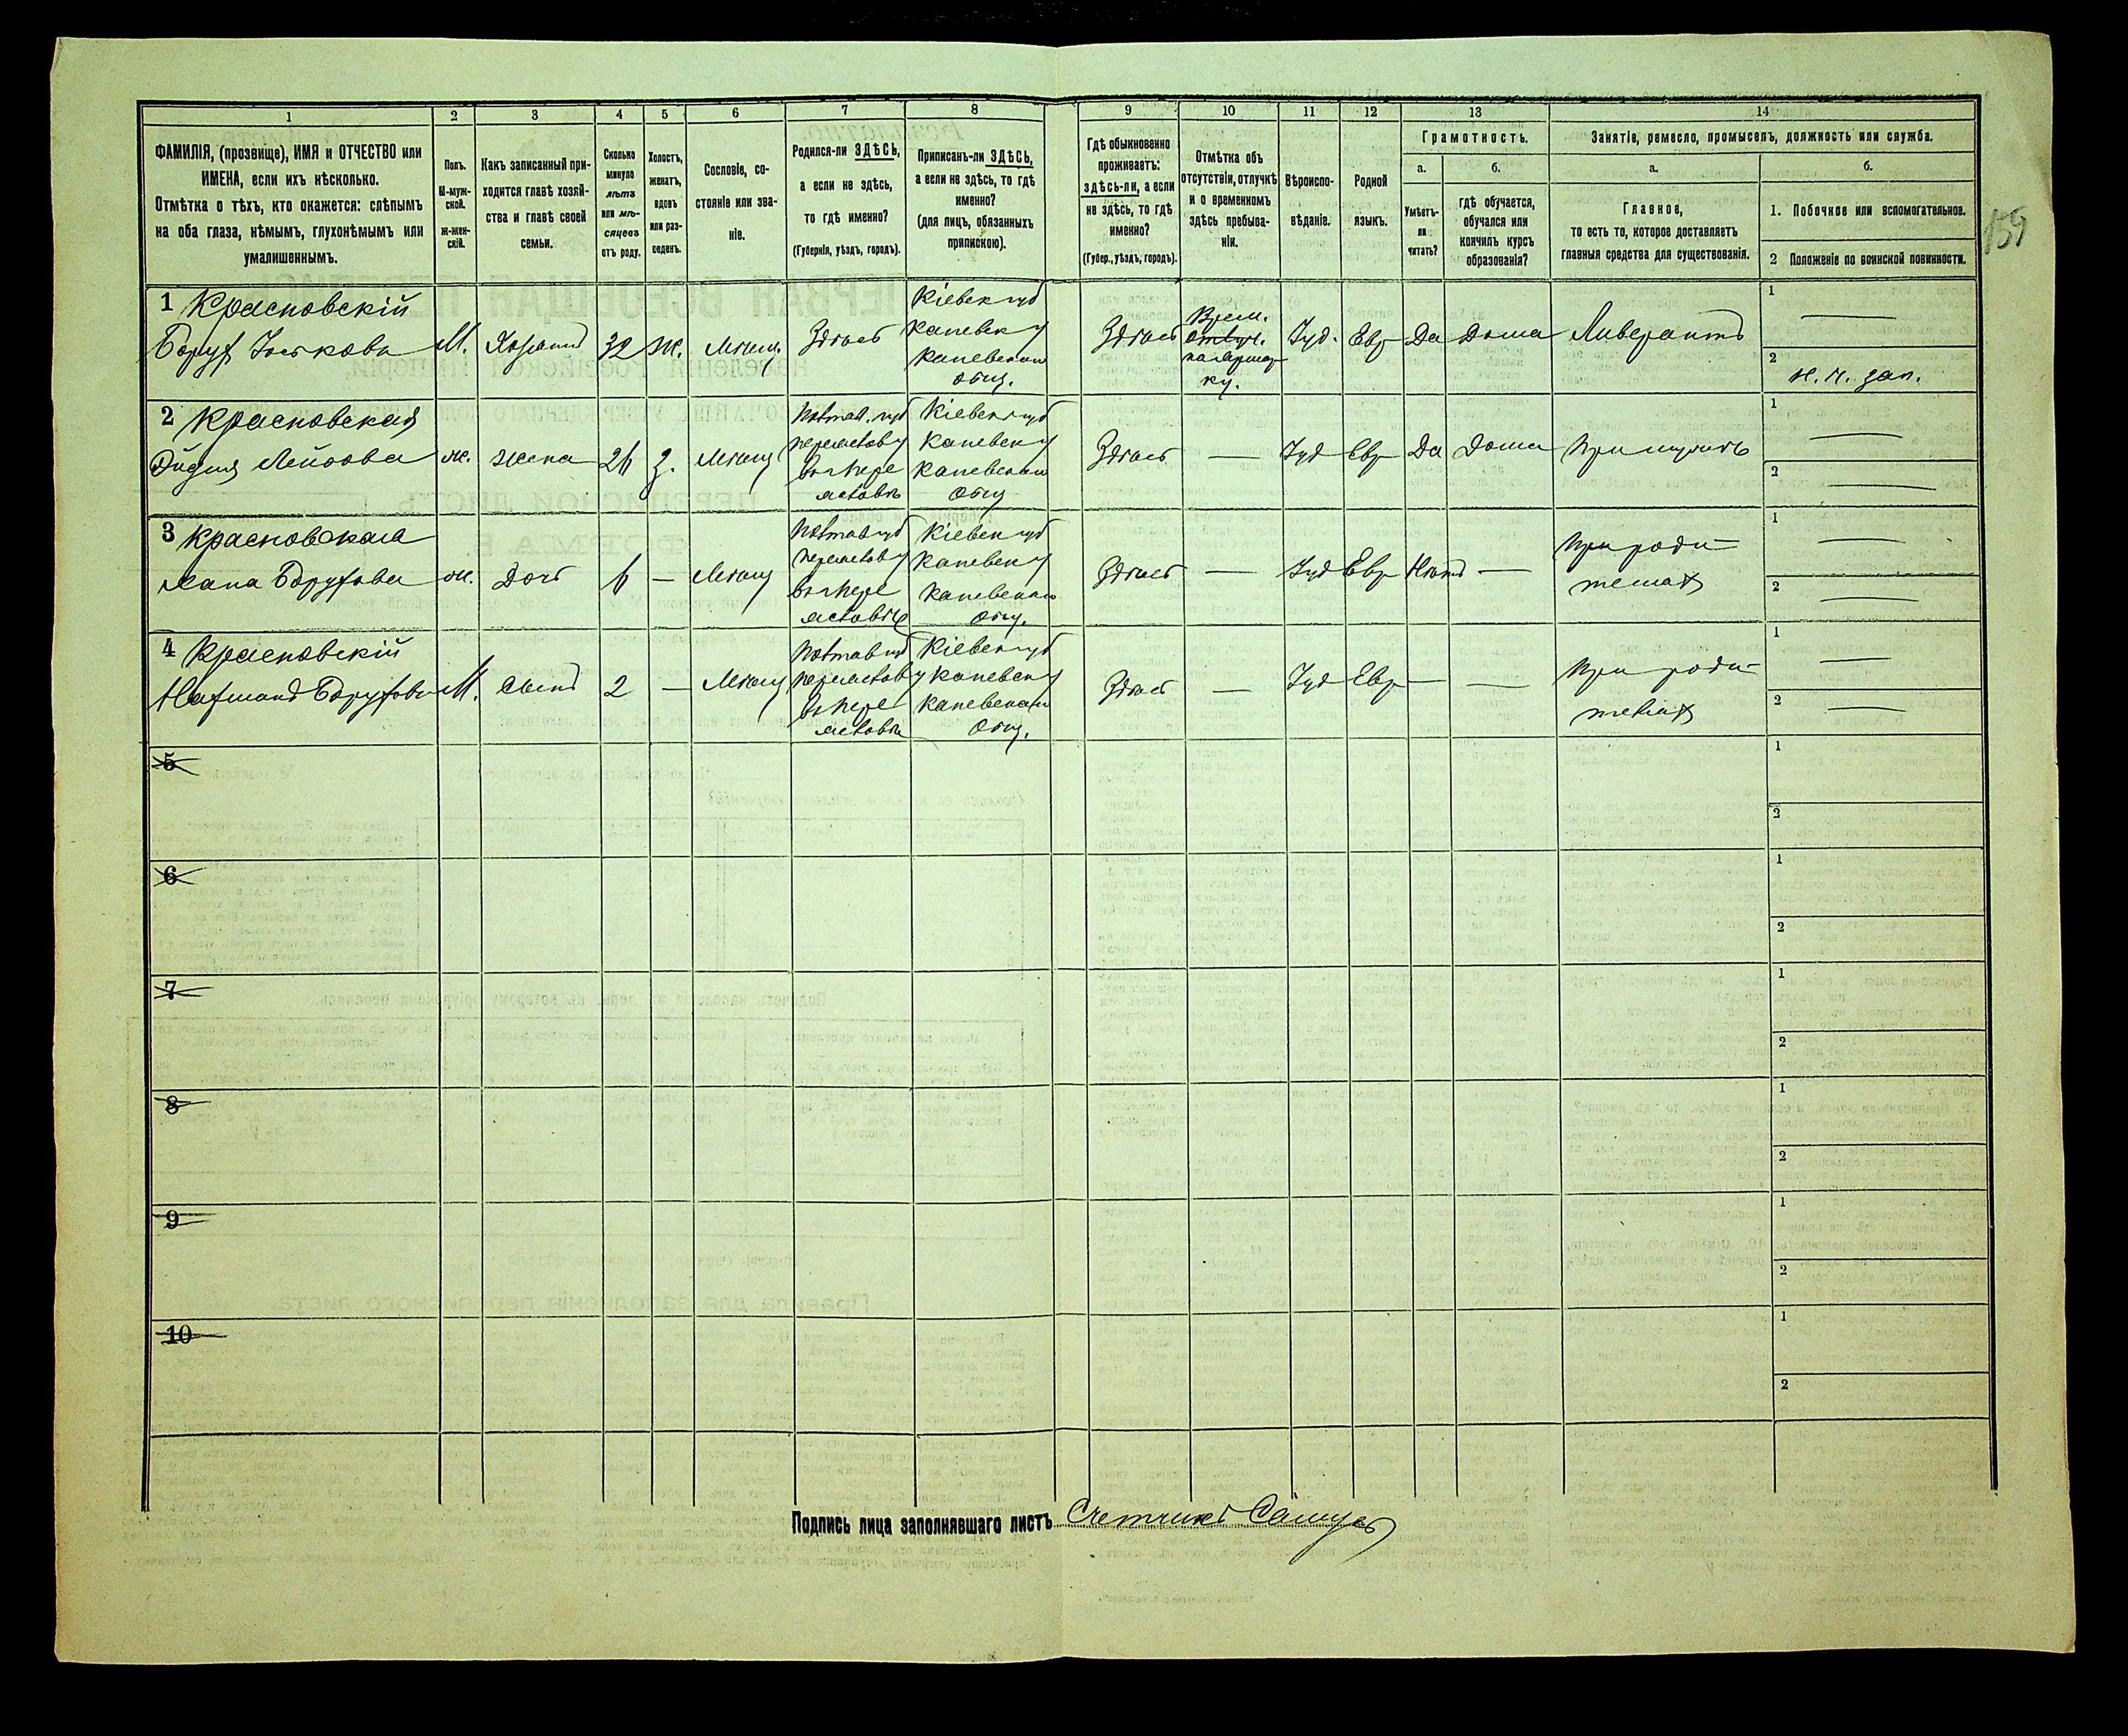 159
1
2
3
4
5
6
7
8
9
10
11
12
13
14
ФАМИЛІЯ, (прозвище), ИМЯ и ОТЧЕСТВО или
ИМЕНА, если ихъ нѣсколько.
Отмѣтка о тѣхъ, кто окажется: слѣпымъ
на оба глаза, нѣмымъ, глухонѣмымъ или
умалишеннымъ.
Полъ.
М-муж-
ской.
ж-жен-
скій.
Какъ записанный при-
ходится главѣ хозяй-
ства и главѣ своей
семьи.
Сколько
минуло
лѣтъ
или мѣ-
сяцевъ
отъ роду.
Холостъ,
женатъ,
вдовъ
или раз-
веденъ.
Сословіе, со-
стояніе или зва-
ніе.
Родился-ли ЗДѢСЬ,
а если не здѣсь,
то гдѣ именно?
(Губернія, уѣздъ, городъ).
Приписанъ-ли ЗДѢСЬ,
а если не здѣсь, то гдѣ
именно?
(для лицъ, обязанныхъ
припискою).
Гдѣ обыкновенно
проживаетъ:
здѣсь-ли, а если
не здѣсь, то гдѣ
именно?
(Губер., уѣздъ, городъ).
Отмѣтка объ
отсутствіи, отлучкѣ
и о временномъ
здѣсь пребыва-
ніи.
Вѣроиспо-
вѣданіе.
Родной
языкъ.
Грамотность.
а.
Умѣетъ-
ли
читать?
б.
гдѣ обучается,
обучался или
кончилъ курсъ
образованія?
Занятіе, ремесло, промыселъ, должность или служба.
а.
Главное,
то есть то, которое доставляетъ
главныя средства для существованія.
б.
1. Побочное или вспомогательное.
2 Положеніе по воинской повинности.
1 Красновскій
Борух Іоськовъ
М.
Хозяинъ
32
ж.
Мѣщ.
Здѣсь
Кіевск губ
Каневск у
Каневскаго
общ.
Здѣсь
Врем.
отлуч.
Іуд.
Евр
Да
Дома
1
2
н. ч. зап.
2 Красновская
ж.
жена
26
З.
Мѣщ
Полтав. губ
Кіевск губ
Каневск у
Каневскаго
общ
Здѣсь
—
Іуд
Евр
Да
Дома
При мужѣ
1
2
3 Красновская
Хана Борухова
ж.
Дочь
6
—
Мѣщ
Полтав губ
Кіевск губ
Каневск у
Каневскаго
общ.
Здѣсь
—
Іуд
Евр
Нѣтъ
—
При роди-
телях
1
2
4 Красновскій
Нахманъ Борухов
М.
Сынъ
2
—
Мѣщ
Полтав губ
Кіевск губ
Каневск у
Каневскаго
общ.
Здѣсь
—
Іуд
Евр
—
—
При роди-
телях
1
2
5
1
2
6
1
2
7
1
2
8
1
2
9
1
2
10
1
2
Подпись лица заполнявшаго листъ Счетчикъ